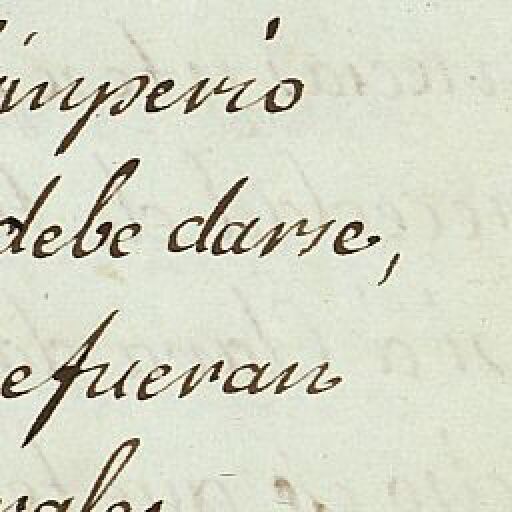 imperio
debe darse,
efueran